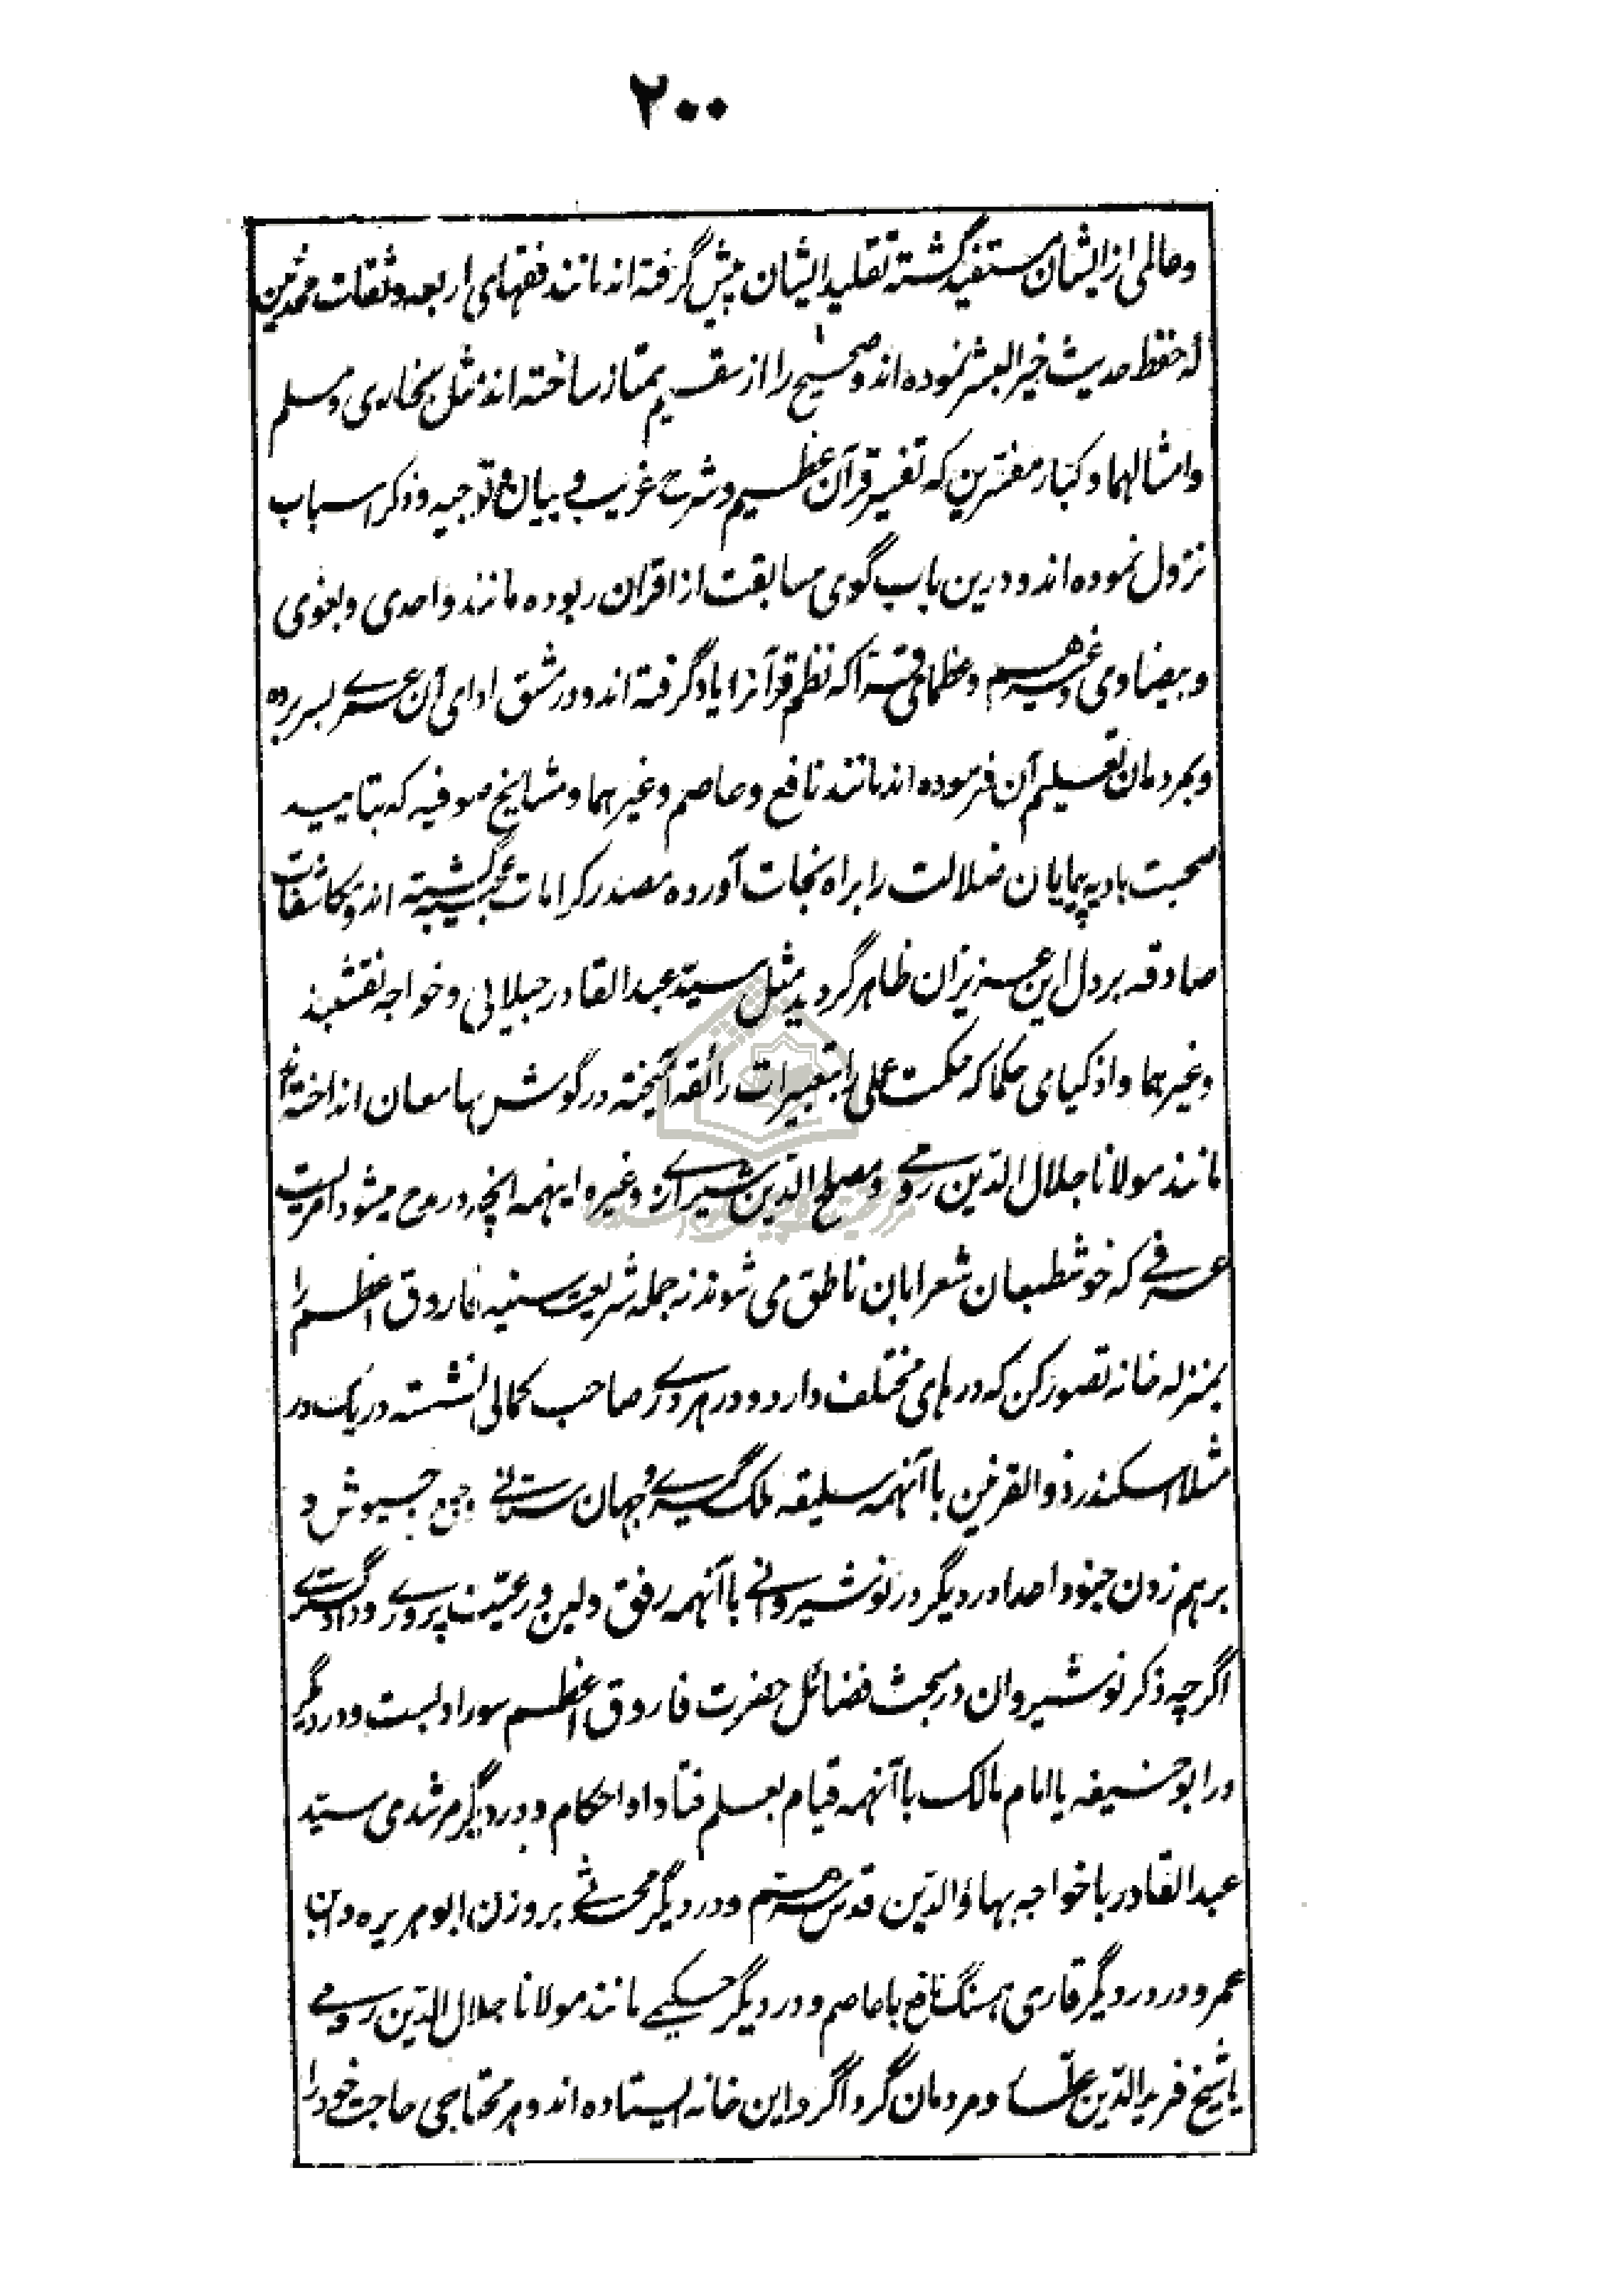 ۲۰۰
وعالمی از ایشان مستفید گشته تقلید ایشان پیش گرفته اند مانند فقهای اربعه و ثقات محدثین
که حفظ حدیث خیر البشر نموده اند و صحیح را از سقیم ممتاز ساخته اند مثل بخاری و مسلم
و امثالهما و کبار مفسرین که تفسیر قرآن عظیم و شرح غریب و بیان توجیه و ذکر اسباب
نزول نموده اند و درین باب گوی مسابقت از اقران ربوده مانند واحدی و بغوی
و بیضاوی وغیرهم و عظمای قراء که نظم قرآنرا یاد گرفته اند و در مشق ادای آن عمرے بسر برده
و بمردمان تعلیم آن فرموده اند مانند نافع و عاصم و غیرهما و مشایخ صوفیه که بتایید
صحبت بادیه پیمایان ضلالت را براه نجات آورده مصدر کرامات عجیبه گشته اند و مکاشفات
صادقه بر دل این عزیزان ظاهر گردید مثل سیّد عبد القادر جیلانی و خواجه نقشبند
و غیرهما و اذکیای حکما که حکمت عملی را بتعبیرات رائقه آمیخته در گوشهای سامعان انداخته اند
مانند مولانا جلال الدّین رومے و مصلح الدّین شیرازے و غیره اینهمه آنچه در مدح میشود امریست
عرفے که خوشطبعان شعرا بان ناطق می شوند نه جمله شریعت سنیه فاروق اعظم را
بمنزله خانه تصور کن که درهای مختلف دارد و در هر درے صاحب کمالی نشسته در یک در
مثلا اسکندر ذو القرنین با آنهمه سلیقه ملک گیرے و جهان ستانے جیوش و
برهم زدن جنود اعدا و در دیگر در نوشیروانے با آنهمه رفق و لین و رعیّت پرورے و دادگسترے
اگرچه ذکر نوشیروان در مبحث فضائل حضرت فاروق اعظم سوء ادبست و در دیگر
در ابو حنیفه یا امام مالک با آنهمه قیام بعلم فتاوا و احکام و در دیگر مرشدی سیّد
عبد القادر یا خواجه بهاؤ الدّین قدس سرهم و در دیگر محدثے بر وزن ابو هریره و ابن
عمر و در در دیگر قاری همسنگ نافع یا عاصم و در دیگر حکیمے مانند مولانا جلال الدّین رومے
یا شیخ فرید الدّین عطار و مردمان گرداگرد این خانه ایستاده اند و هر محتاجی حاجت خود را